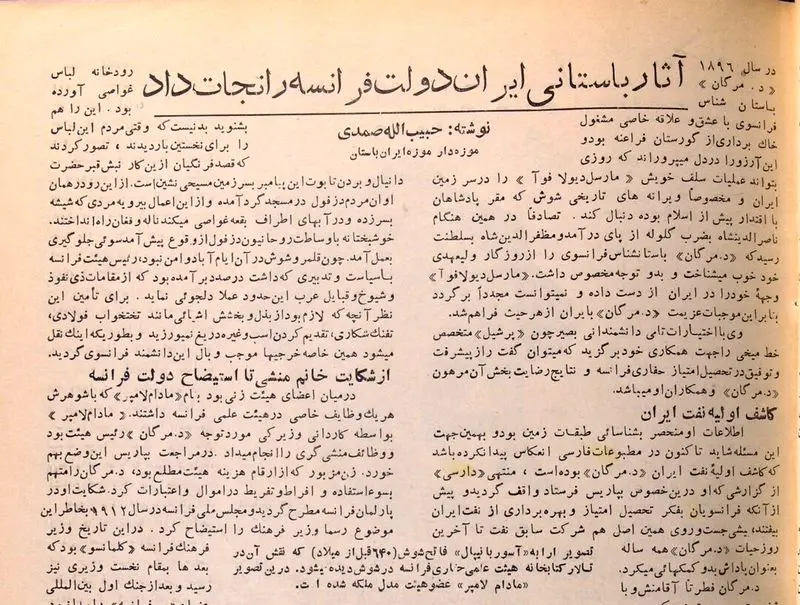 آثار باستانی ایران دولت فرانسه را نجات داد
نوشته: حبیب‌الله صمدی
موزه‌دار موزه ایران باستان
در سال ۱۸۹۶
«د. مرگان»
باستان شناس
فرانسوی با عشق و علاقه خاصی مشغول
خاک برداری از گورستان فراعنه بود و
این آرزو را در دل میپروراند که روزی
بتواند عملیات سلف خویش «مارسل دیولافوآ» را در سر زمین
ایران و مخصوصاً ویرانه های تاریخی شوش که مقر پادشاهان
با اقتدار پیش از اسلام بوده دنبال کند. تصادفاً در همین هنگام
ناصرالدینشاه بضرب گلوله از پای درآمد و مظفرالدین شاه بسلطنت
رسید که «د. مرگان» باستانشناس فرانسوی را از روزگار ولیعهدی
خود خوب میشناخت و بدو توجه مخصوص داشت. «مارسل دیولافوآ»
وجهۀ خود را در ایران از دست داده و نمیتوانست مجدداً برگردد
بنابراین موجبات عزیمت «د. مرگان» بایران از هر حیث فراهم شد.
وی با اختیارات تامی دانشمندانی بصیر چون «پرشیل» متخصص
خط میخی را جهت همکاری خود برگزید که میتوان گفت راز پیشرفت
و توفیق در تحصیل امتیاز حفاری فرانسه و نتایج رضایت بخش آن مرهون
«د. مرگان» و همکاران او میباشد.
کاشف اولیه نفت ایران
اطلاعات او منحصر بشناسائی طبقات زمین بود و بهمین جهت
این مسئله شاید تا کنون در مطبوعات فارسی انعکاس پیدا نکرده باشد
که کاشف اولیۀ نفت ایران «د. مرگان» بوده است، منتهی «دارسی»
از گزارشی که او در این خصوص بپاریس فرستاد واقف گردید و پیش
از آنکه فرانسویان بفکر تحصیل امتیاز و بهره برداری از نفت ایران
بیفتند، پیشی جست و روی همین اصل هم شرکت سابق نفت تا آخرین
روز حیات «د. مرگان» همه ساله
بعنوان پاداش بدو کمکهائی میکرد.
د. مرگان فطرتا آقا منش و با
رودخانه لباس
غواصی آورده
بود. این را هم
بشنوید بد نیست که وقتی مردم این لباس
را برای نخستین بار دیدند، تصور کردند
که قصد فرنگیان از این کار نبش قبر حضرت
دانیال و بردن تابوت این پیامبر بسر زمین مسیحی نشین است. از این رو در همان
اوان مردم دزفول در مسجد گرد آمده و از این اعمال بیرویه مردی که شیشه
بسر زده و در آبهای اطراف بقعه غواصی میکند ناله و فغان راه انداختند.
خوشبختانه با وساطت روحانیون دزفول از وقوع پیش آمد سوئی جلوگیری
بعمل آمد. چون قلمرو شوش در آن ایام آباد و امن نبود، رئیس هیئت فرانسه
با سیاست و تدبیری که داشت در صدد بر آمده بود که از مقامات ذی نفوذ
و شیوخ و قبایل عرب این حدود عملا دلجوئی نماید. برای تأمین این
نظر آنچه که لازم بود از بذل و بخشش اشیائی مانند تختخواب فولادی،
تفنگ شکاری، تقدیم کردن اسب و غیره دریغ نمیورزید و بطوریکه اینک نقل
میشود همین خاصه خرجیها موجب وبال این دانشمند فرانسوی گردید.
از شکایت خانم منشی تا استیضاح دولت فرانسه
در میان اعضای هیئت زنی بود بنام «مادام لامپر» که با شوهرش
هر یک وظایف خاصی در هیئت علمی فرانسه داشتند. «مادام لامپر»
بواسطه کاردانی و زیرکی مورد توجه «د. مرگان» رئیس هیئت بود
و وظائف منشی گری را انجام میداد. در مراجعت بپاریس این وضع بهم
خورد. زن مزبور که از ارقام هزینه هیئت مطلع بود، د. مرگان را متهم
بسوء استفاده و افراط و تفریط در اموال و اعتبارات کرد. شکایت او در
پارلمان فرانسه مطرح گردید و مجلس ملی فرانسه در سال ۹۹۱۲ بخاطر این
موضوع رسما وزیر فرهنگ را استیضاح کرد. در این تاریخ وزیر
فرهنگ فرانسه «کلمانسو» بود که
بعد ها بمقام نخست وزیری نیز
رسید و بعد از جنگ اول بین المللی
تصویر ارابه «آسور بانیپال» فاتح شوش (۶۴۰ قبل از میلاد) که نقش آن در
تالار کتابخانه هیئت علمی حفاری فرانسه در شوش دیده میشود. در این تصویر
«مادام لامپر» عضو هیئت مدل ملکه شده است.